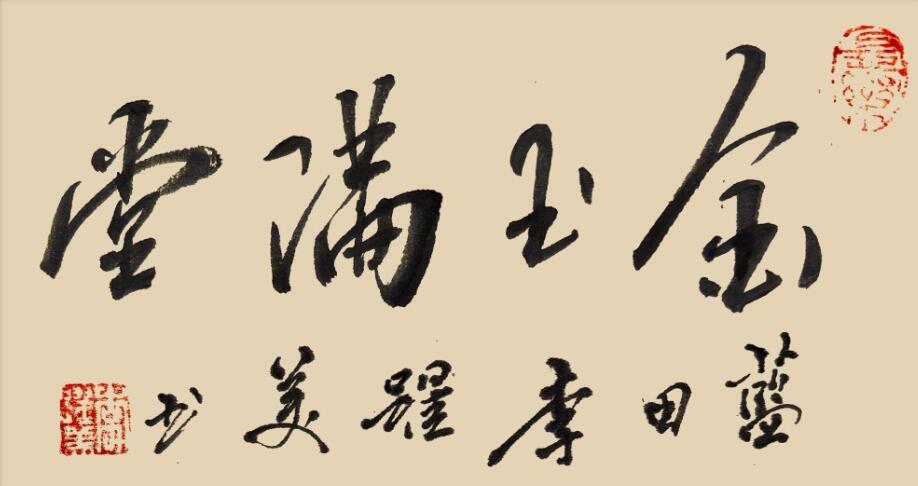 金玉满堂
藍田李躍美书